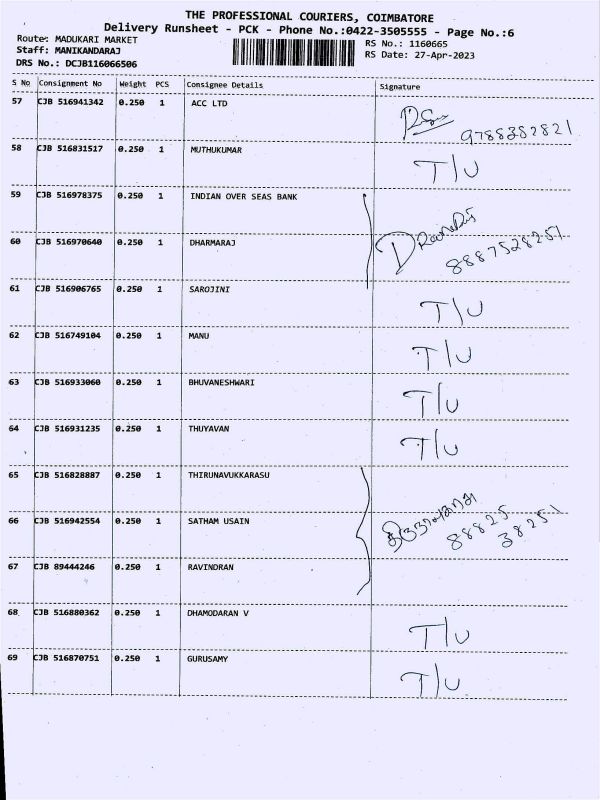 THE PROFESSIONAL COURIERS, COIMBATORE
Delivery Runsheet - PCK - Phone No.:0422-3505555 - Page No.:6
Route: MADUKARI MARKET
RS No.: 1160665
Staff: MANIKANDARAJ
RS Date: 27-Apr-2023
DRS No.: DCJB116066506
S No Consignment No Weight PCS Consignee Details Signature
57 CJB 516941342 0.250 1 ACC LTD
9788382821
58 CJB 516831517 0.250 1 MUTHUKUMAR T/U
59 CJB 516978375 0.250 1 INDIAN OVER SEAS BANK
60 CJB 516970640 0.250 1 DHARMARAJ
8887528257
61 CJB 516906765 0.250 1 SAROJINI T/U
62 CJB 516749104 0.250 1 MANU T/U
63 CJB 516933060 0.250 1 BHUVANESHWARI T/U
64 CJB 516931235 0.250 1 THUYAVAN T/U
65 CJB 516828887 0.250 1 THIRUNAVUKKARASU
66 CJB 516942554 0.250 1 SATHAM USAIN
88825
38251
67 CJB 89444246 0.250 1 RAVINDRAN
68 CJB 516880362 0.250 1 DHAMODARAN V T/U
69 CJB 516870751 0.250 1 GURUSAMY T/U